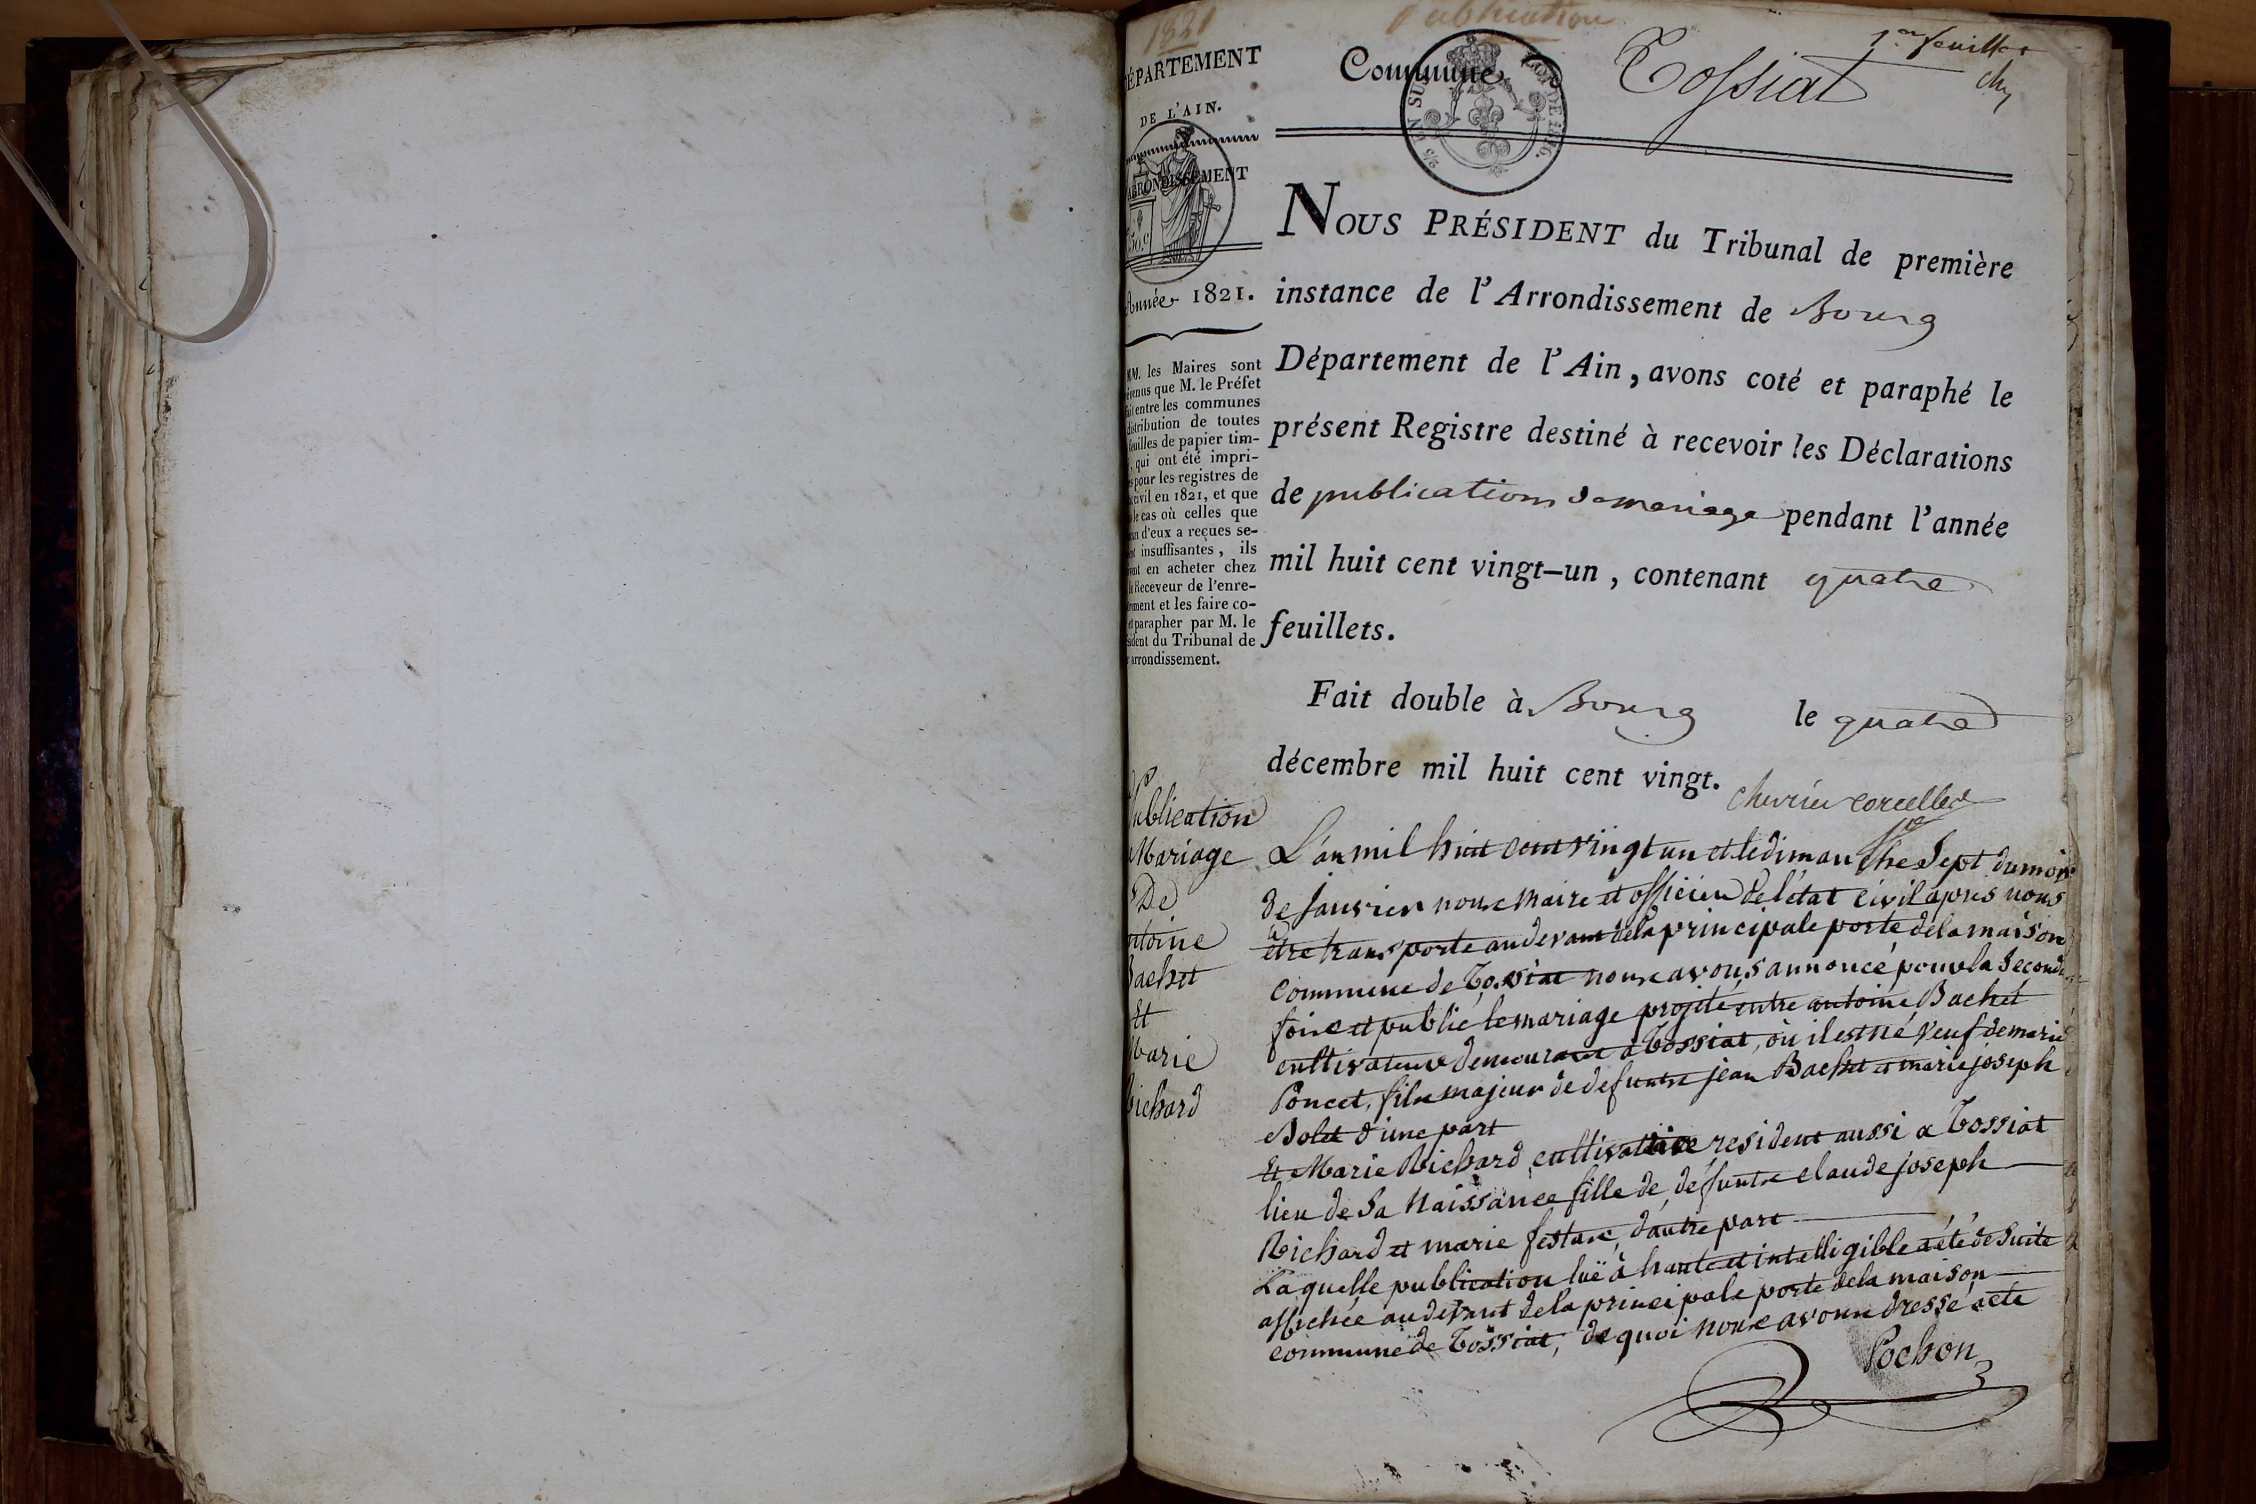 1821
Publication
1.er feuillet
DÉPARTEMENT
DE L'AIN.
ARRONDISSEMENT
Commune Tossiat
Année 1821.
MM. les Maires sont
prévenus que M. le Préfet
fait entre les communes
distribution de toutes
feuilles de papier tim-
, qui ont été impri-
pour les registres de
civil en 1821, et que
le cas où celles que
d'eux a reçues se-
insuffisantes, ils
en acheter chez
Receveur de l'enre-
et les faire co-
et parapher par M. le
Président du Tribunal de
arrondissement.
NOUS PRÉSIDENT du Tribunal de première
instance de l'Arrondissement de Bourg
Département de l'Ain, avons coté et paraphé le
présent Registre destiné à recevoir les Déclarations
de publications de mariage pendant l'année
mil huit cent vingt-un, contenant quatre
feuillets.
Fait double à Bourg le quatre
décembre mil huit cent vingt.
chevrier corcelles
Publication
Mariage
De
antoine
Bachet
Et
Marie
Richard
L'an mil huit cent vingt un et le dimanche Sept du mois
de Janvier nous maire et officier de l'état civil après nous
être transporté au devant de la principale porte de la maison
commune de Tossiat nous avons annoncé pour la Seconde
fois et publié le mariage projité entre antoine Bachet
cultivateur demeurant à Tossiat, où il est né veuf de marie
Poncet, fils majeur de defunts jean Bachet et marie joseph
Bolet d'une part
Et Marie Richard cultivatrice resident aussi a Tossiat
lieu de Sa Naissance fille de défunts claude joseph
Richard et marie festas, d'autre part
Laquelle publication luë à haute et intelligible a été de Suite
affichée au devant de la principale porte de la maison
commune de Tossiat, de quoi nous avons dressé acte
Pochon